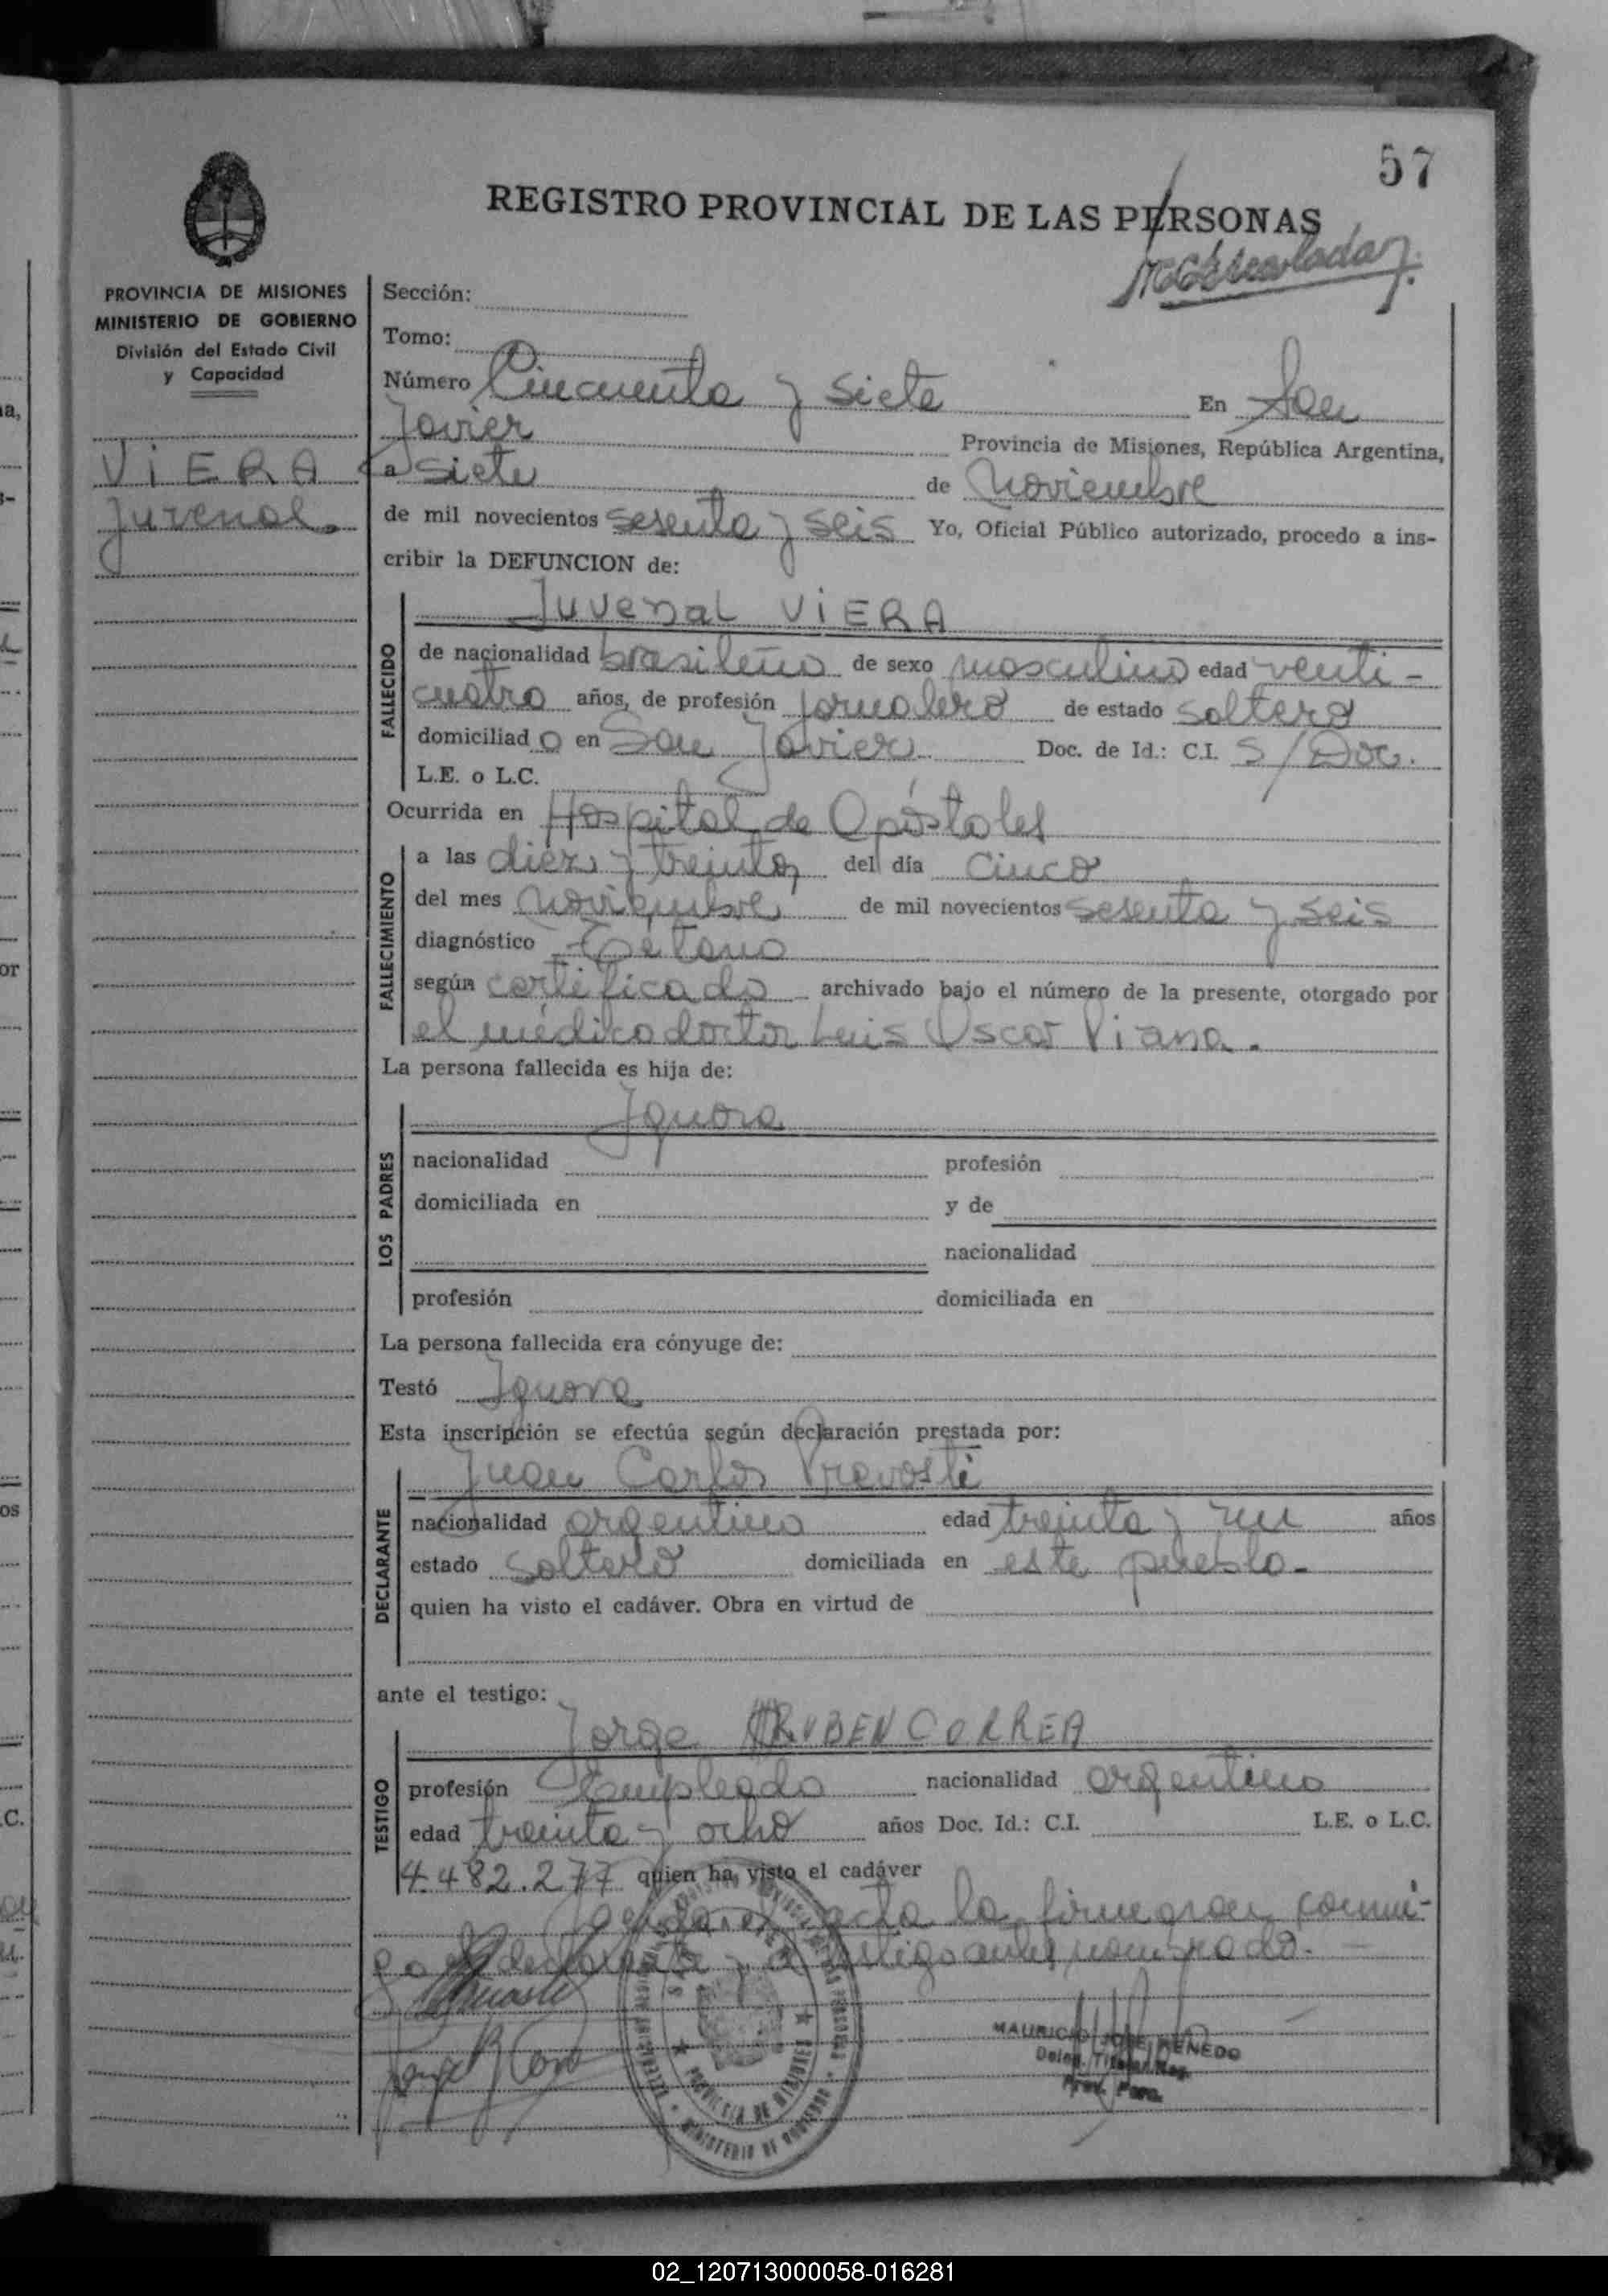 57
REGISTRO PROVINCIAL DE LAS PERSONAS
PROVINCIA DE MISIONES
MINISTERIO DE GOBIERNO
División del Estado Civil
y Capacidad
VIERA
Juvenal.
Sección:
Tomo:
Número Cincuenta y siete En San
Javier Provincia de Misiones, República Argentina,
a siete de Noviembre
de mil novecientos sesenta y seis Yo, Oficial Público autorizado, procedo a ins-
cribir la DEFUNCION de:
Juvenal VIERA
FALLECIDO
de nacionalidad brasileño de sexo masculino edad venti-
cuatro años, de profesión jornalero de estado soltero
domiciliado en San Javier Doc. de Id.: C.I. S/Doc.
L.E. o L.C.
Ocurrida en Hospital de Apóstoles
FALLECIMIENTO
a las diez y treinta del día cinco
del mes noviembre de mil novecientos sesenta y seis
diagnóstico Tétano
según certificado archivado bajo el número de la presente, otorgado por
el médico doctor Luis Oscar Viana.
La persona fallecida es hija de:
LOS PADRES
Ignora
nacionalidad profesión
domiciliada en y de
nacionalidad
profesión domiciliada en
La persona fallecida era cónyuge de:
Testó Ignora
Esta inscripción se efectúa según declaración prestada por:
DECLARANTE
Juan Carlos Prevosti
nacionalidad argentino edad treinta y un años
estado soltero domiciliada en este pueblo.-
quien ha visto el cadáver. Obra en virtud de
ante el testigo:
TESTIGO
Jorge RUBEN CORREA
profesión Empleado nacionalidad argentino
edad treinta y ocho años Doc. Id.: C.I. L.E. o L.C.
4.482.277 quien ha visto el cadáver
Leida el acta la firmaran conmi-
go el declarante y el testigo antes nombrado.-
MAURICIO JOSE RENEDO
Deleg. Titular Reg.
Prov. Pers.
PROVINCIA DE MISIONES
MINISTERIO DE GOBIERNO
02_120713000058-016281